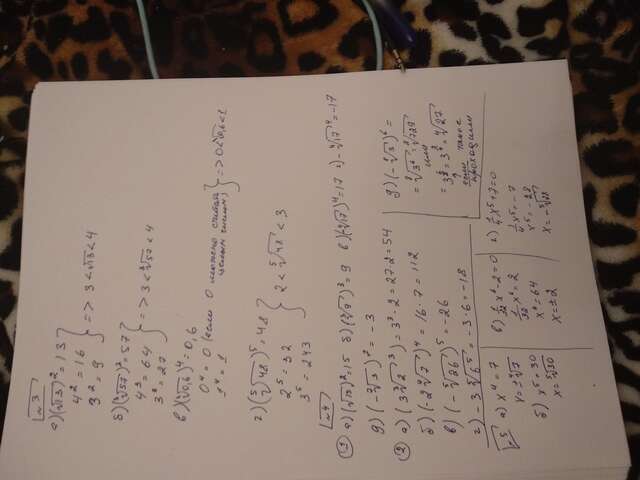 №3
а) (√13)² = 13
4² = 16
3² = 9
=> 3 < √13 < 4
б) (³√57)³ = 57
4³ = 64
3³ = 27
=> 3 < ³√57 < 4
в) (⁴√0,6)⁴ = 0,6
0⁴ = 0 (если 0 можно считать
целым числом)
1⁴ = 1
=> 0 < ⁴√0,6 < 1
г) (⁵√48)⁵ = 48
2⁵ = 32
3⁵ = 243
2 < ⁵√48 < 3
№4
① а) (√15)² = 15 б) (³√9)³ = 9 в) (-⁴√17)⁴ = 17 г) -⁴√17⁴ = -17
д) (-⁷√3)⁷ = -3
② а) (3³√2)³ = 3³·2 = 27·2 = 54
б) (-2⁴√7)⁴ = 16·7 = 112
в) (-⁵√26)⁵ = -26
г) -3⁵√6⁵ = -3·6 = -18
= ⁸√3⁶ = ⁸√729
или
= ⁴√27
такое
проходили
№5
а) x⁴ = 7
x = ±⁴√7
б) x⁵ = 30
x = ⁵√30
в) 1/32 x⁶ - 2 = 0
1/32 x⁶ = 2
x⁶ = 64
x = ±2
г) 1/4 x⁵ + 7 = 0
1/4 x⁵ = -7
x⁵ = -28
x = -⁵√28